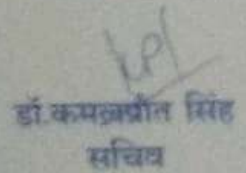 डॉ.कमलप्रीत सिंह
सचिव